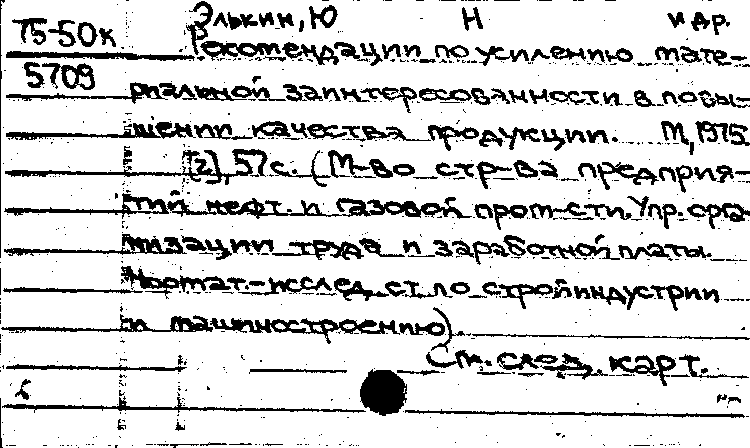 Элькин, Ю Н и др.
75-50к Рекомендации по усилению мате-
5709 риальной заинтересованности в повы-
шении качества продукции. М, 1975.
[2], 57с. (М-во стр-ва предприя-
тий нефт. и газовой пром-сти. Упр. орга-
низации труда и заработной платы.
Нормат.-исслед. ст. по стройиндустрии
и машиностроению).
См. след. карт.